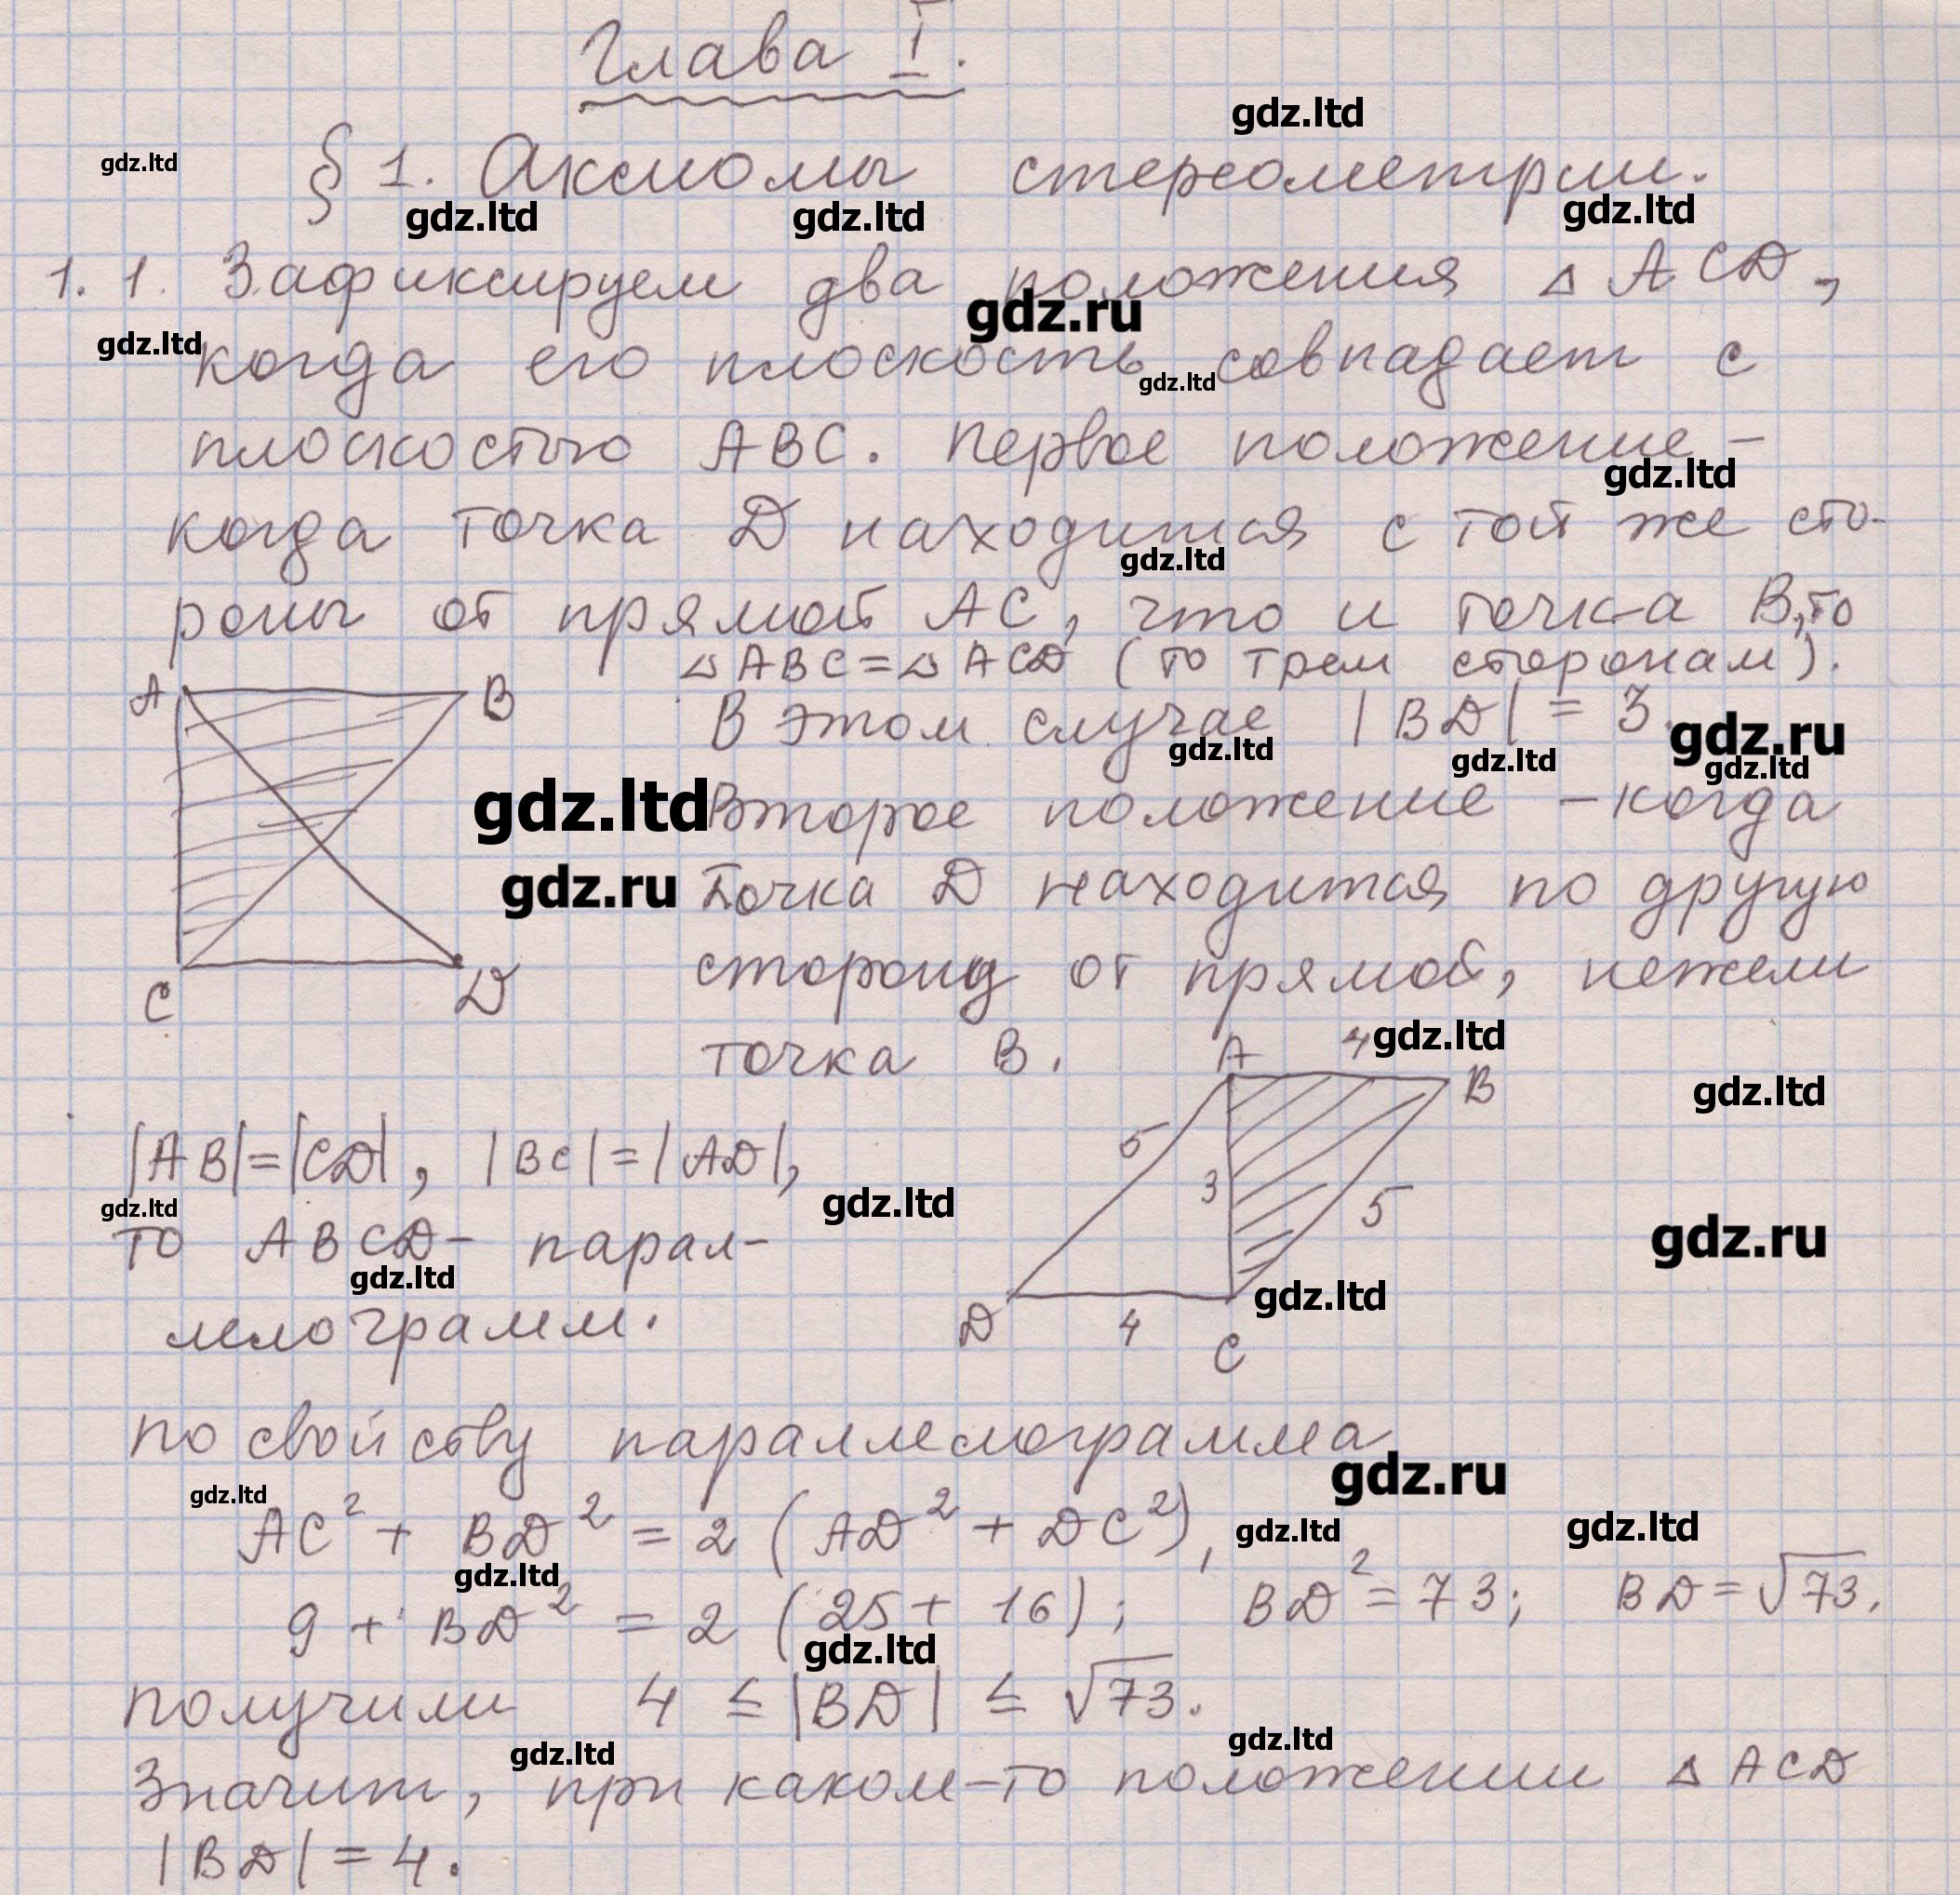 Глава I.
§ 1. Аксиомы стереометрии.
1. 1. Зафиксируем два положения △ ACD,
когда его плоскость совпадает с
плоскостью ABC. Первое положение –
когда точка D находится с той же сто-
роны от прямой AC, что и точка B, то
△ ABC = △ ACD (по трем сторонам).
В этом случае |BD| = 3.
Второе положение – когда
точка D находится по другую
сторону от прямой, нежели
точка B.
A B
C D
A 4 B
5 3 5
D 4 C
|AB| = |CD|, |BC| = |AD|,
то ABCD – парал-
лелограмм.
по свойству параллелограмма
AC² + BD² = 2 (AD² + DC²),
9 + BD² = 2 (25 + 16); BD² = 73; BD = √73.
получили 4 ≤ |BD| ≤ √73.
Значит, при каком-то положении △ ACD
|BD| = 4.
gdz.ltd
gdz.ltd
gdz.ltd
gdz.ltd
gdz.ltd
gdz.ru
gdz.ltd
gdz.ltd
gdz.ltd
gdz.ltd
gdz.ru
gdz.ltd
gdz.ltd
gdz.ltd
gdz.ltd
gdz.ru
gdz.ltd
gdz.ltd
gdz.ltd
gdz.ltd
gdz.ru
gdz.ltd
gdz.ltd
gdz.ru
gdz.ltd
gdz.ltd
gdz.ltd
gdz.ltd
gdz.ltd
gdz.ltd
gdz.ltd